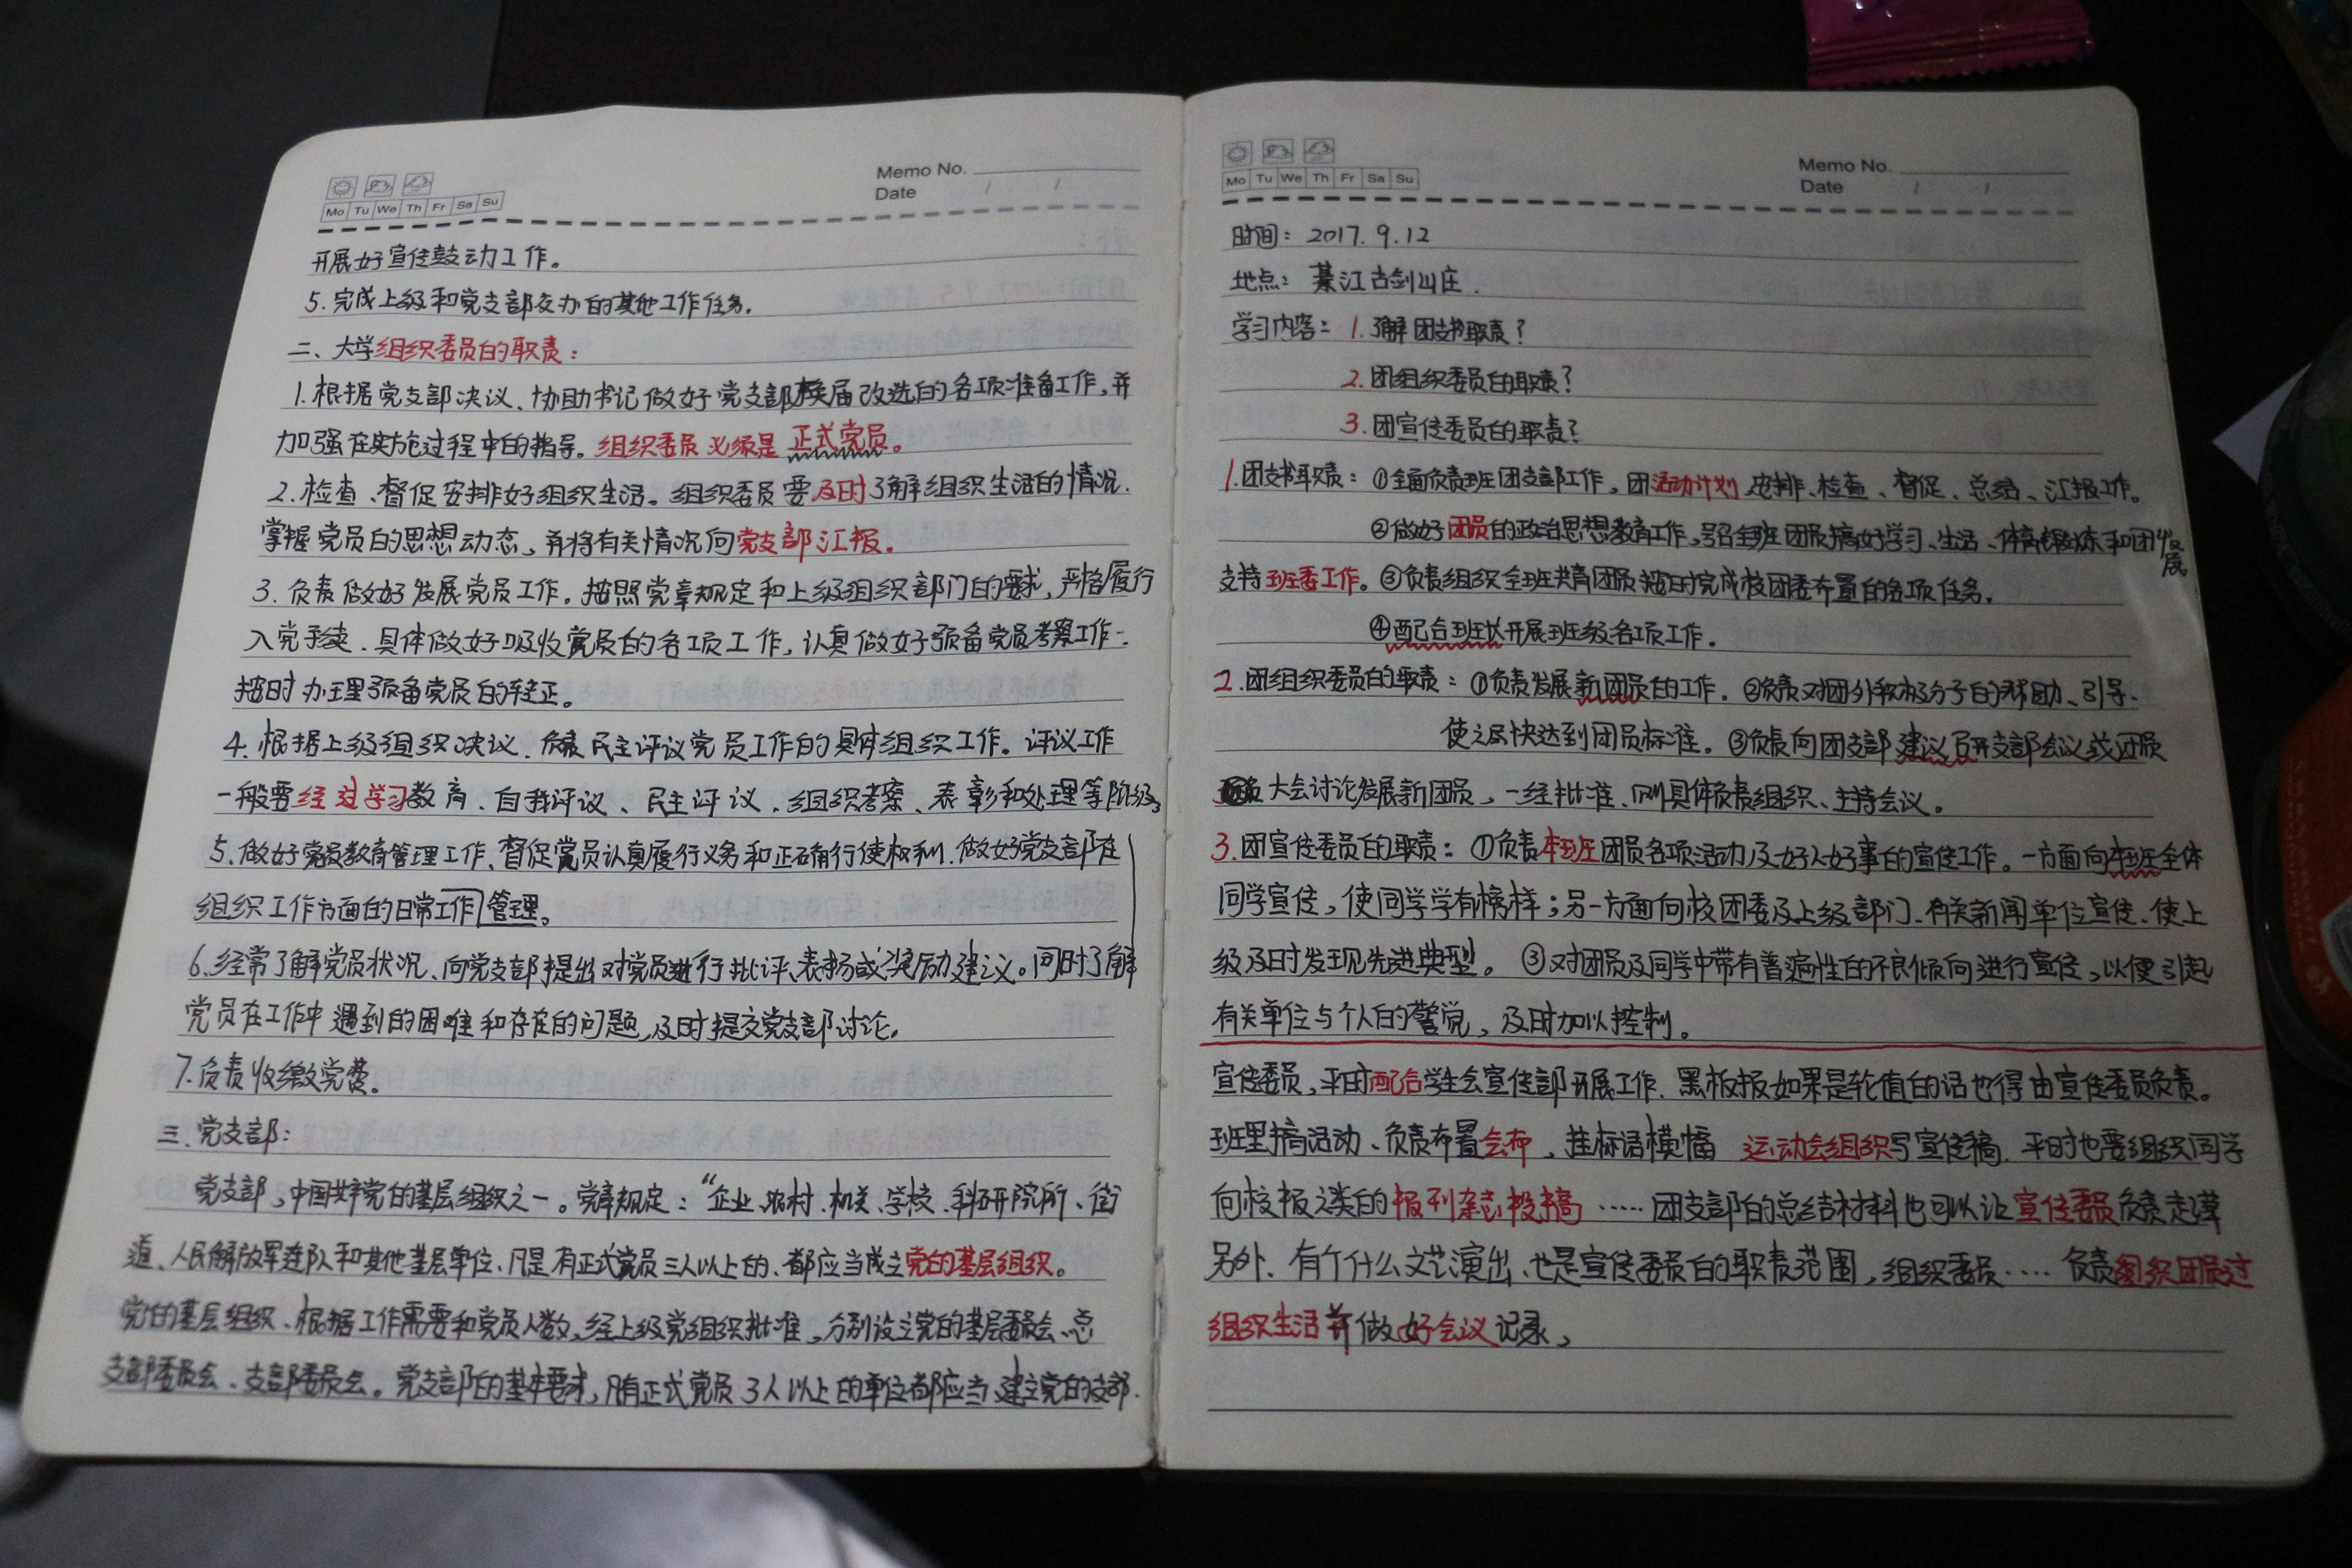 Memo No.
Date / /
Mo Tu We Th Fr Sa Su
开展好宣传鼓动工作。
5.完成上级和党支部交办的其他工作任务。
二、大学组织委员的职责：
1.根据党支部决议、协助书记做好党支部换届改选的各项准备工作,并
加强在实施过程中的指导。组织委员必须是正式党员。
2.检查、督促安排好组织生活。组织委员要及时了解组织生活的情况.
掌握党员的思想动态,再将有关情况向党支部汇报。
3.负责做好发展党员工作。按照党章规定和上级组织部门的要求,严格履行
入党手续、具体做好吸收党员的各项工作,认真做好预备党员考察工作.
按时办理预备党员的转正。
4.根据上级组织决议、负责民主评议党员工作的具体组织工作。评议工作
一般要经过学习教育、自我评议、民主评议、组织考察、表彰和处理等阶段。
5.做好党员教育管理工作、督促党员认真履行义务和正确行使权利.做好党支部在
组织工作方面的日常工作管理。
6.经常了解党员状况、向党支部提出对党员进行批评、表扬或奖励建议。同时了解
党员在工作中遇到的困难和存在的问题,及时提交党支部讨论.
7.负责收缴党费。
三、党支部：
党支部,中国共产党的基层组织之一。党章规定：“企业、农村、机关、学校、科研院所、街
道、人民解放军连队和其他基层单位、凡是有正式党员三人以上的、都应当成立党的基层组织。
党的基层组织、根据工作需要和党员人数,经上级党组织批准,分别设立党的基层委员会、总
支部委员会、支部委员会。党支部的基本要求,凡有正式党员3人以上的单位都应当建立党的支部.
Memo No.
Date / /
Mo Tu We Th Fr Sa Su
时间：2017.9.12
地点：綦江古剑山庄.
学习内容：1.了解团支书职责？
2.团组织委员的职责？
3.团宣传委员的职责？
1.团支书职责：①全面负责班团支部工作,团活动计划、安排、检查、督促、总结、汇报工作。
②做好团员的政治思想教育工作,号召全班团员搞好学习、生活、体育锻炼和团发展
支持班委工作。③负责组织全班共青团员按时完成校团委布置的各项任务.
④配合班长开展班级各项工作.
2.团组织委员的职责：①负责发展新团员的工作.②负责对团外积极分子的帮助、引导.
使之尽快达到团员标准.③负责向团支部建议召开支部会议或团员
大会讨论发展新团员,一经批准、则具体负责组织、主持会议。
3.团宣传委员的职责：①负责本班团员各项活动及好人好事的宣传工作。一方面向本班全体
同学宣传,使同学学有榜样；另一方面向校团委及上级部门、有关新闻单位宣传、使上
级及时发现先进典型。③对团员及同学中带有普遍性的不良倾向进行宣传,以便引起
有关单位与个人的警觉,及时加以控制。
宣传委员,平时配合学生会宣传部开展工作.黑板报如果是轮值的话也得由宣传委员负责。
班里搞活动、负责布置会布,挂标语横幅 运动会组织写宣传稿.平时也要组织同学
向校报之类的报刊杂志投搞……团支部的总结材料也可以让宣传委员负责起草
另外、有个什么文艺演出、也是宣传委员的职责范围,组织委员……负责组织团员过
组织生活并做好会议记录,